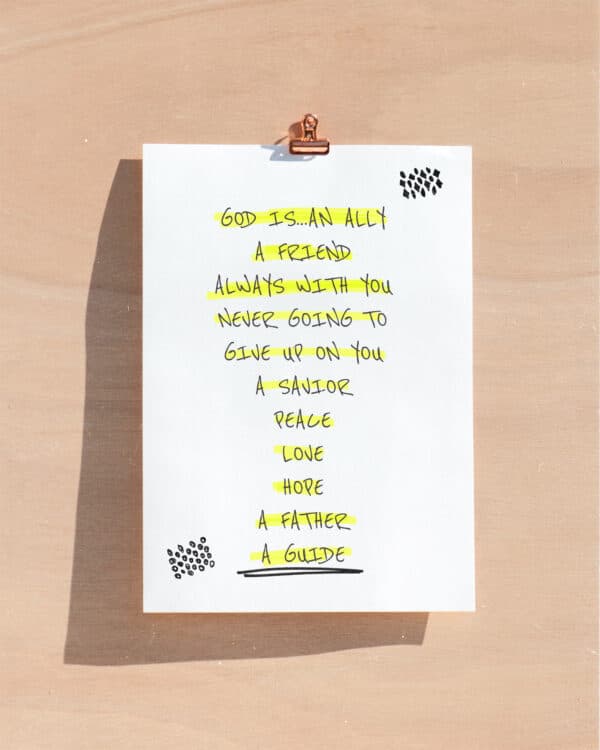 GOD IS...AN ALLY
A FRIEND
ALWAYS WITH YOU
NEVER GOING TO
GIVE UP ON YOU
A SAVIOR
PEACE
LOVE
HOPE
A FATHER
A GUIDE